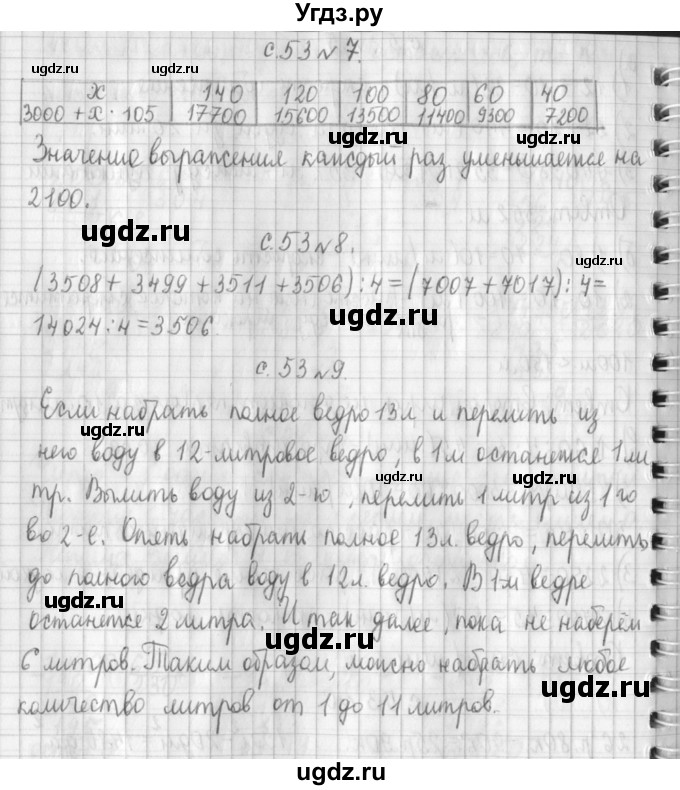 Угдз.ру
с.53 № 7.
x 140 120 100 80 60 40
3000 + x · 105 17700 15600 13500 11400 9300 7200
Значение выражения каждый раз уменьшается на
2100.
с.53 № 8.
(3508 + 3499 + 3511 + 3506) : 4 = (7007 + 7017) : 4 =
14024 : 4 = 3506.
с. 53 № 9.
Если набрать полное ведро 13л и перелить из
него воду в 12-литровое ведро, в 1м останется 1 ли
тр. Вылить воду из 2-го, перелить 1 литр из 1 го
во 2-е. Опять набрать полное 13л. ведро, перелить
до полного ведра воду в 12л. ведро. В 1м ведре
останется 2 литра. И так далее, пока не наберём
6 литров. Таким образом, можно набрать любое
количество литров от 1 до 11 литров.
ugdz.ru
ugdz.ru
ugdz.ru
ugdz.ru
ugdz.ru
ugdz.ru
ugdz.ru
ugdz.ru
ugdz.ru
ugdz.ru
ugdz.ru
ugdz.ru
ugdz.ru
ugdz.ru